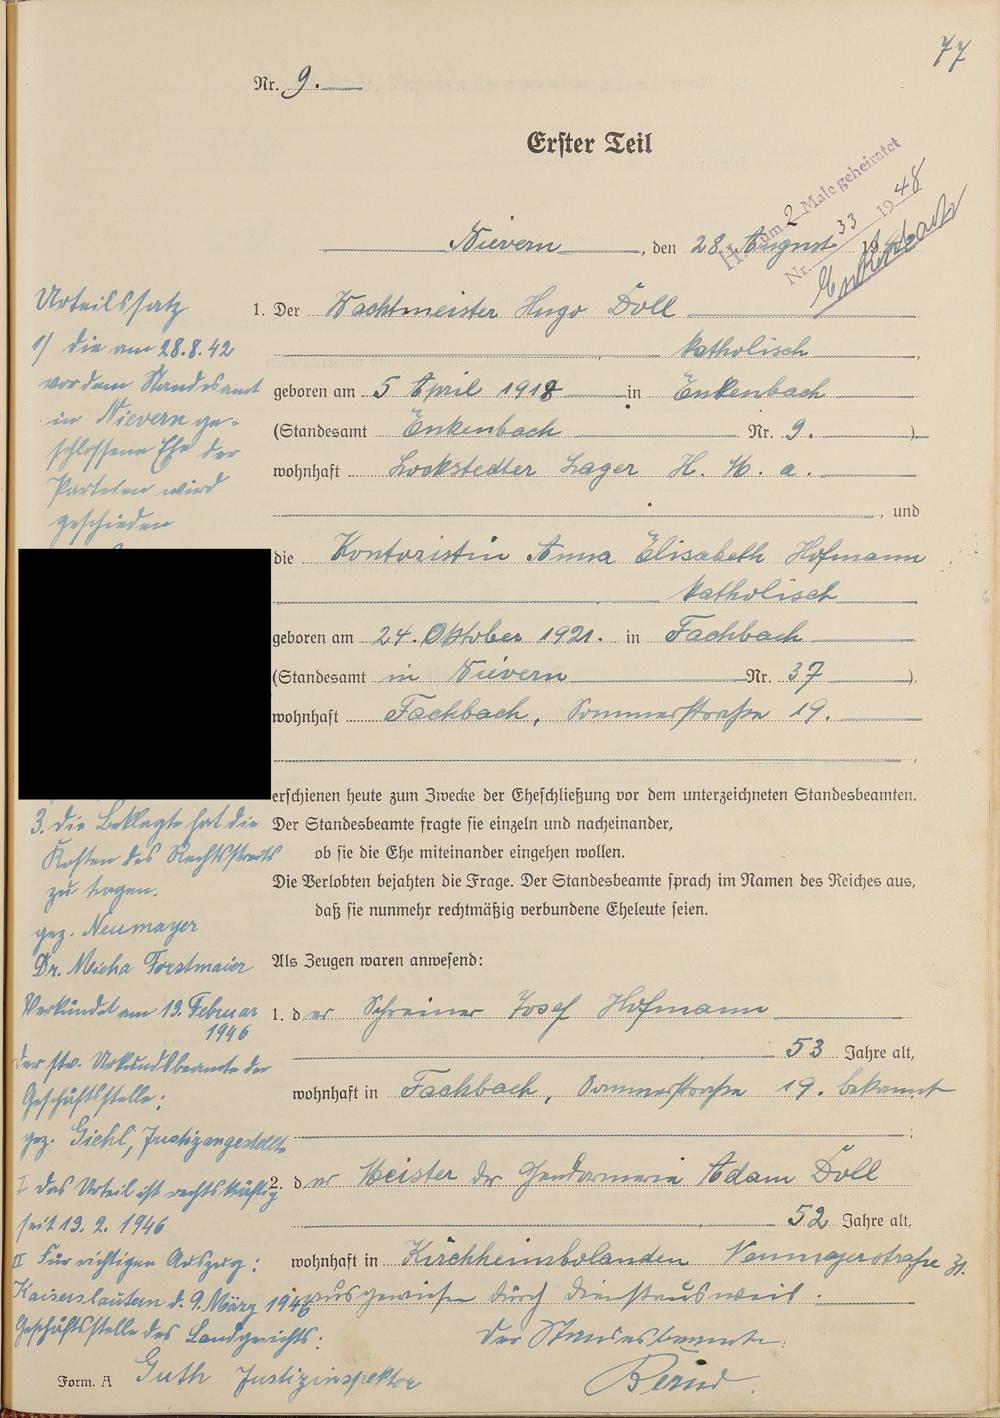 77
Nr. 9.
Erster Teil
II. zum 2 Male geheiratet
Nr. 33 1948
Enkenbach
Nievern, den 28. August 19
1. Der Wachtmeister Hugo Doll
katholisch
geboren am 5 April 1918 in Enkenbach
(Standesamt Enkenbach Nr. 9.)
wohnhaft Lockstedter Lager H. K. a.
, und
die Kontoristin Anna Elisabeth Hofmann
katholisch
geboren am 24. Oktober 1921. in Fachbach
(Standesamt in Nievern Nr. 37)
wohnhaft Fachbach, Sommerstraße 19.
erschienen heute zum Zwecke der Eheschließung vor dem unterzeichneten Standesbeamten.
Der Standesbeamte fragte sie einzeln und nacheinander,
ob sie die Ehe miteinander eingehen wollen.
Die Verlobten bejahten die Frage. Der Standesbeamte sprach im Namen des Reiches aus,
daß sie nunmehr rechtmäßig verbundene Eheleute seien.
Als Zeugen waren anwesend:
1. der Schreiner Josef Hofmann
53 Jahre alt,
wohnhaft in Fachbach, Sommerstraße 19. bekannt
;
2. der Meister der Gendarmerie Adam Doll
52 Jahre alt,
wohnhaft in Kirchheimbolanden Neumayerstraße 31.
ausgewiesen durch Dienstausweis.
Der Standesbeamte:
Bernd
Urteilssatz
1) die am 28.8.42
vor dem Standesamt
in Nievern ge-
schlossene Ehe der
Parteien wird
geschieden
3. die Beklagte hat die
Kosten des Rechtsstreits
zu tragen.
gez. Neumayer
Dr. Micha Forstmaier
Verkündet am 19. Februar
1946
der stv. Urkundsbeamte der
Geschäftsstelle:
gez. Giehl, Justizangestellte
I das Urteil ist rechtskräftig
seit 19. 2. 1946
II Für richtigen Auszug:
Kaiserslautern d. 9. März 1946
Geschäftsstelle des Landgerichts:
Guth Justizinspektor
Form. A